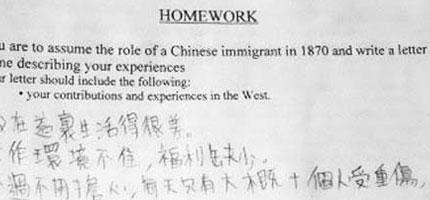 HOMEWORK
u are to assume the role of a Chinese immigrant in 1870 and write a letter
ne describing your experiences
r letter should include the following:
• your contributions and experiences in the West.
在這裏生活得很差。
作環境不佳，福利缺少。
不用擔心，每天只有大概十個人受重傷，